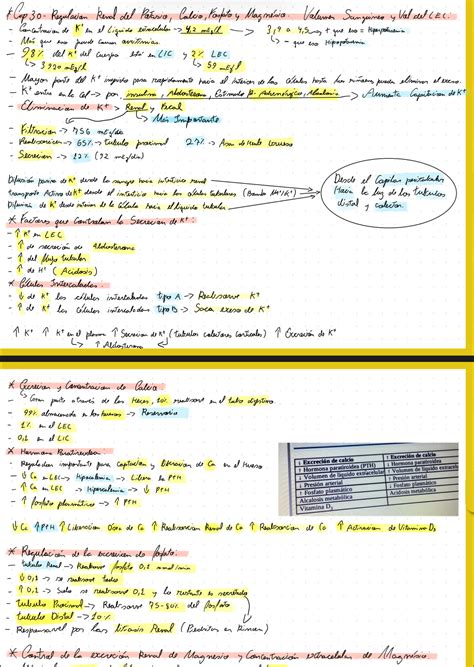 * Cap 30: Regulacion Renal del Potasio, Calcio, Fosfato y Magnesio. Volumen Sanguineo y Vol del LEC.
- Concentracion de K+ en el Liquido extracelular → 4,2 mEq/l → 3,9 a 7,5 → + que eso = Hiperpotasemia
- Mas que eso puede causar arritmias. - que eso Hipopotasemia
- 98% del K+ del Cuerpo está en LIC y 2% LEC
↳ 3920 mEq/l ↳ 59 mEq/l
- Mayor parte del K+ ingerido pasa rapidamente hacia el interior de las celulas hasta los riñones puedan eliminar el exceso.
- K+ entra en la cel → por insulina, Aldosterona, Estimulo β-Adrenérgico, Alcalosis → Aumenta Captacion de K+
- Eliminacion de K+ → Renal y Fecal
↳ Más Importante
- Filtracion → 756 mEq/dia
- Reabsorcion → 65% tubulo proximal 27% → Asa de Henle
- Secrecion → 12% (92 mEq/dia)
Difusión pasiva de K+ desde la sangre hacia intersticio renal
transporte Activo de K+ desde el intersticio hacia las células tubulares (Bomba Na+/K+)
Difusión de K+ desde interior de la Célula hacia el liquido tubular
Desde el Capilar peritubular
Hacia la luz de los tubulos
distal y colector.
* Factores que Controlan la Secrecion de K+:
- ↑ K+ en LEC
- ↑ de secreción de Aldosterona
- ↑ del flujo tubular
- ↑ de H+ (Acidosis)
* Células Intercaladas:
- ↓ de K+ las células intercaladas tipo A → Reabsorve K+
- ↑ de K+ las células intercaladas tipo B → Saca exceso de K+
↑ K+ ↑ K+ en el plasma ↑ Secrecion de K+ (tubulos colectores corticales) ↑ Excreción de K+
↳ ↑ Aldosterona
* Excrecion y Concentracion de Calcio
↳ Gran parte através de las Heces, 10% reabsorve en el tubo digestivo.
- 99% almacenado en los huesos → Reservorio
- 1% en el LEC
- 0,1 en el LIC
* Hormona Paratiroidea
- Regulador importante para Captacion y liberacion de Ca en el Hueso
- ↓ Ca en LEC → Hipocalcemia → Libera la PTH
- ↑ Ca en LEC → Hipercalcemia → ↓ PTH
- ↑ fosfato plasmático → ↑ PTH
↓ Excreción de calcio ↑ Excreción de calcio
↑ Hormona paratiroidea (PTH) ↓ Hormona paratiroidea
↓ Volumen de líquido extracelular ↑ Volumen de líquido extracelular
↓ Presión arterial ↑ Presión arterial
↑ Fosfato plasmático ↓ Fosfato plasmático
Alcalosis metabólica Acidosis metabólica
Vitamina D3
↓ Ca ↑ PTH ↑ Liberacion Osea de Ca ↑ Reabsorcion Renal de Ca ↑ Reabsorcion de Ca ↑ Activacion de Vitamina D3
* Regulación de la excrecion de fosfato:
- tubulo Renal → Reabsorve fosfato 0,1 mmol/min
- ↓ 0,1 → se reabsorve todo
- ↑ 0,1 → Solo se reabsorve 0,1 y lo restante es excretado
- tubulo Proximal → Reabsorve 75-80% del fosfato
- tubulo Distal → 10%
- Responsavel por las litiasis Renal (Piedritas en Rinon)
* Control de la excreción Renal de Magnesio y Concentración extracelular de Magnesio.